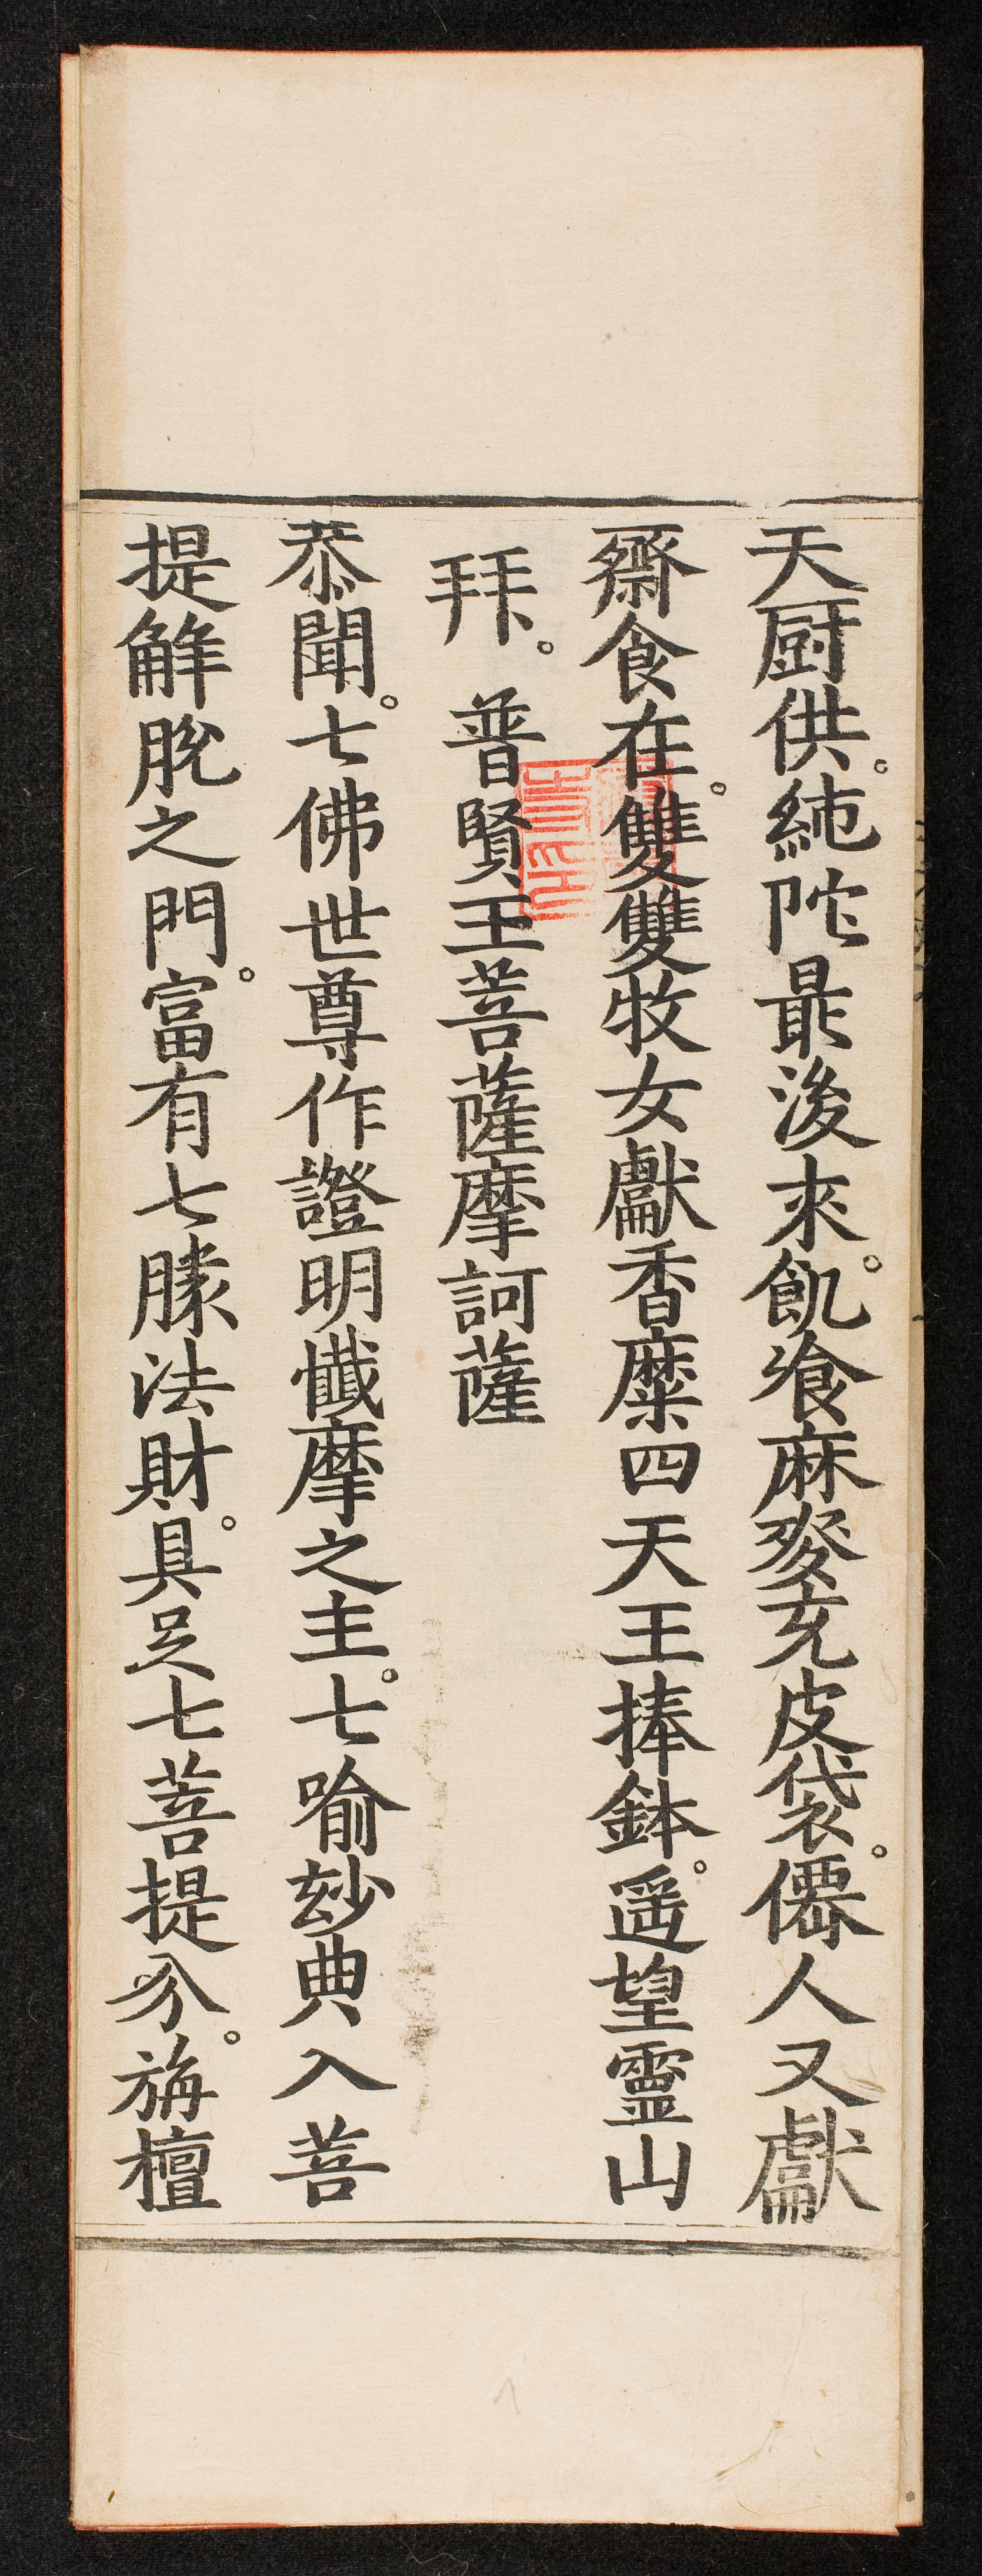 天厨供。純陁最後来。飢飡麻麥充皮袋。僊人又獻
齋食在。雙雙牧女獻香糜四天王捧鉢。遥望靈山
拜。普賢王菩薩摩訶薩
恭聞。七佛世尊作證明懺摩之主。七喻玅典入菩
提解脫之門。富有七勝法財。具足七菩提分。旃檀